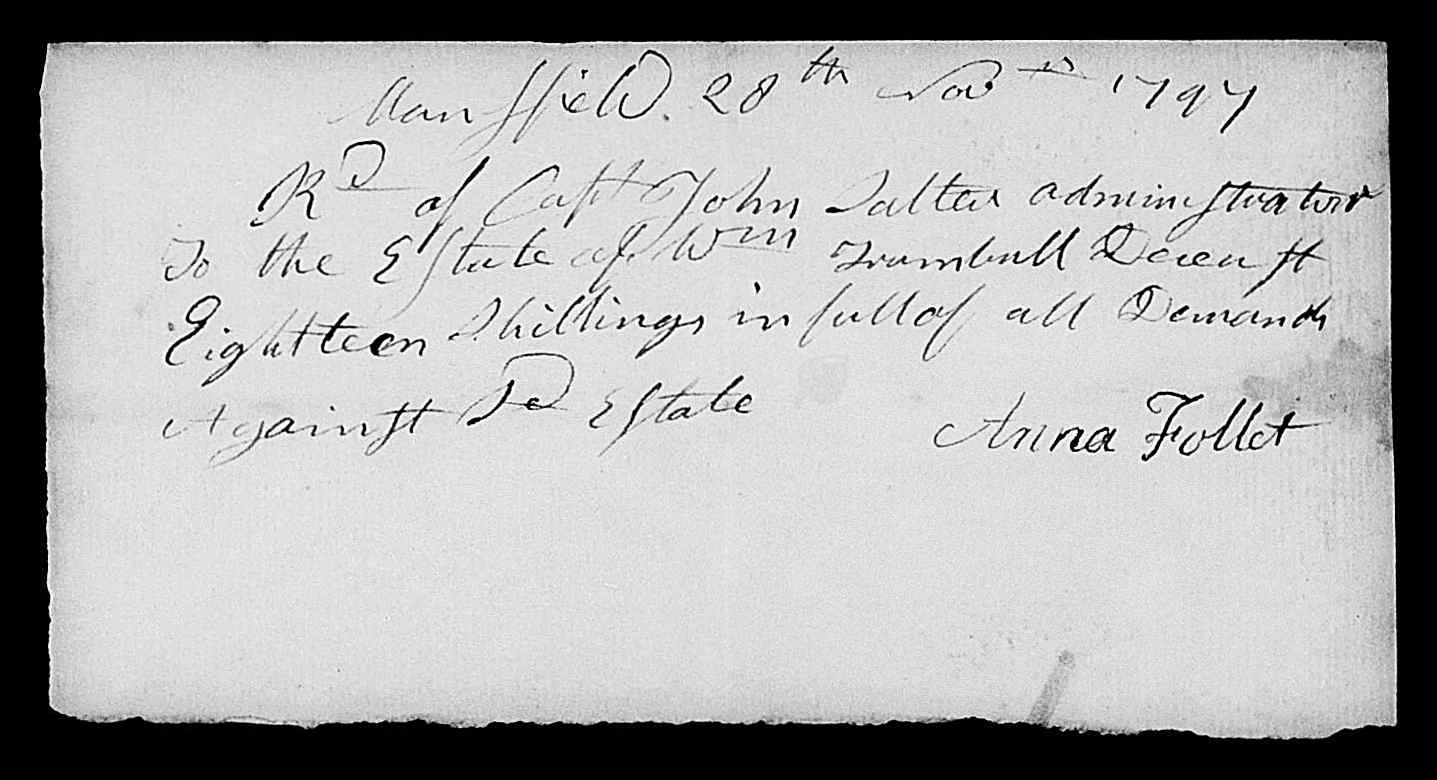 Mansfield. 28th Novr 1797
Rd of Capt John Salter administrator
To the Estate of Wm Trumbull Deceast
Eighteen Shillings in full of all Demands
Against Sd Estate
Anna Follet